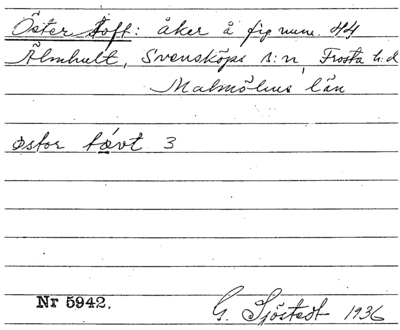 Öster Toft: åker å fig num. 44
Älmhult, Svensköps s:n, Frosta h:d
Malmöhus län
østor tǿvt 3
Nr 5942. G. Sjöstedt 1936